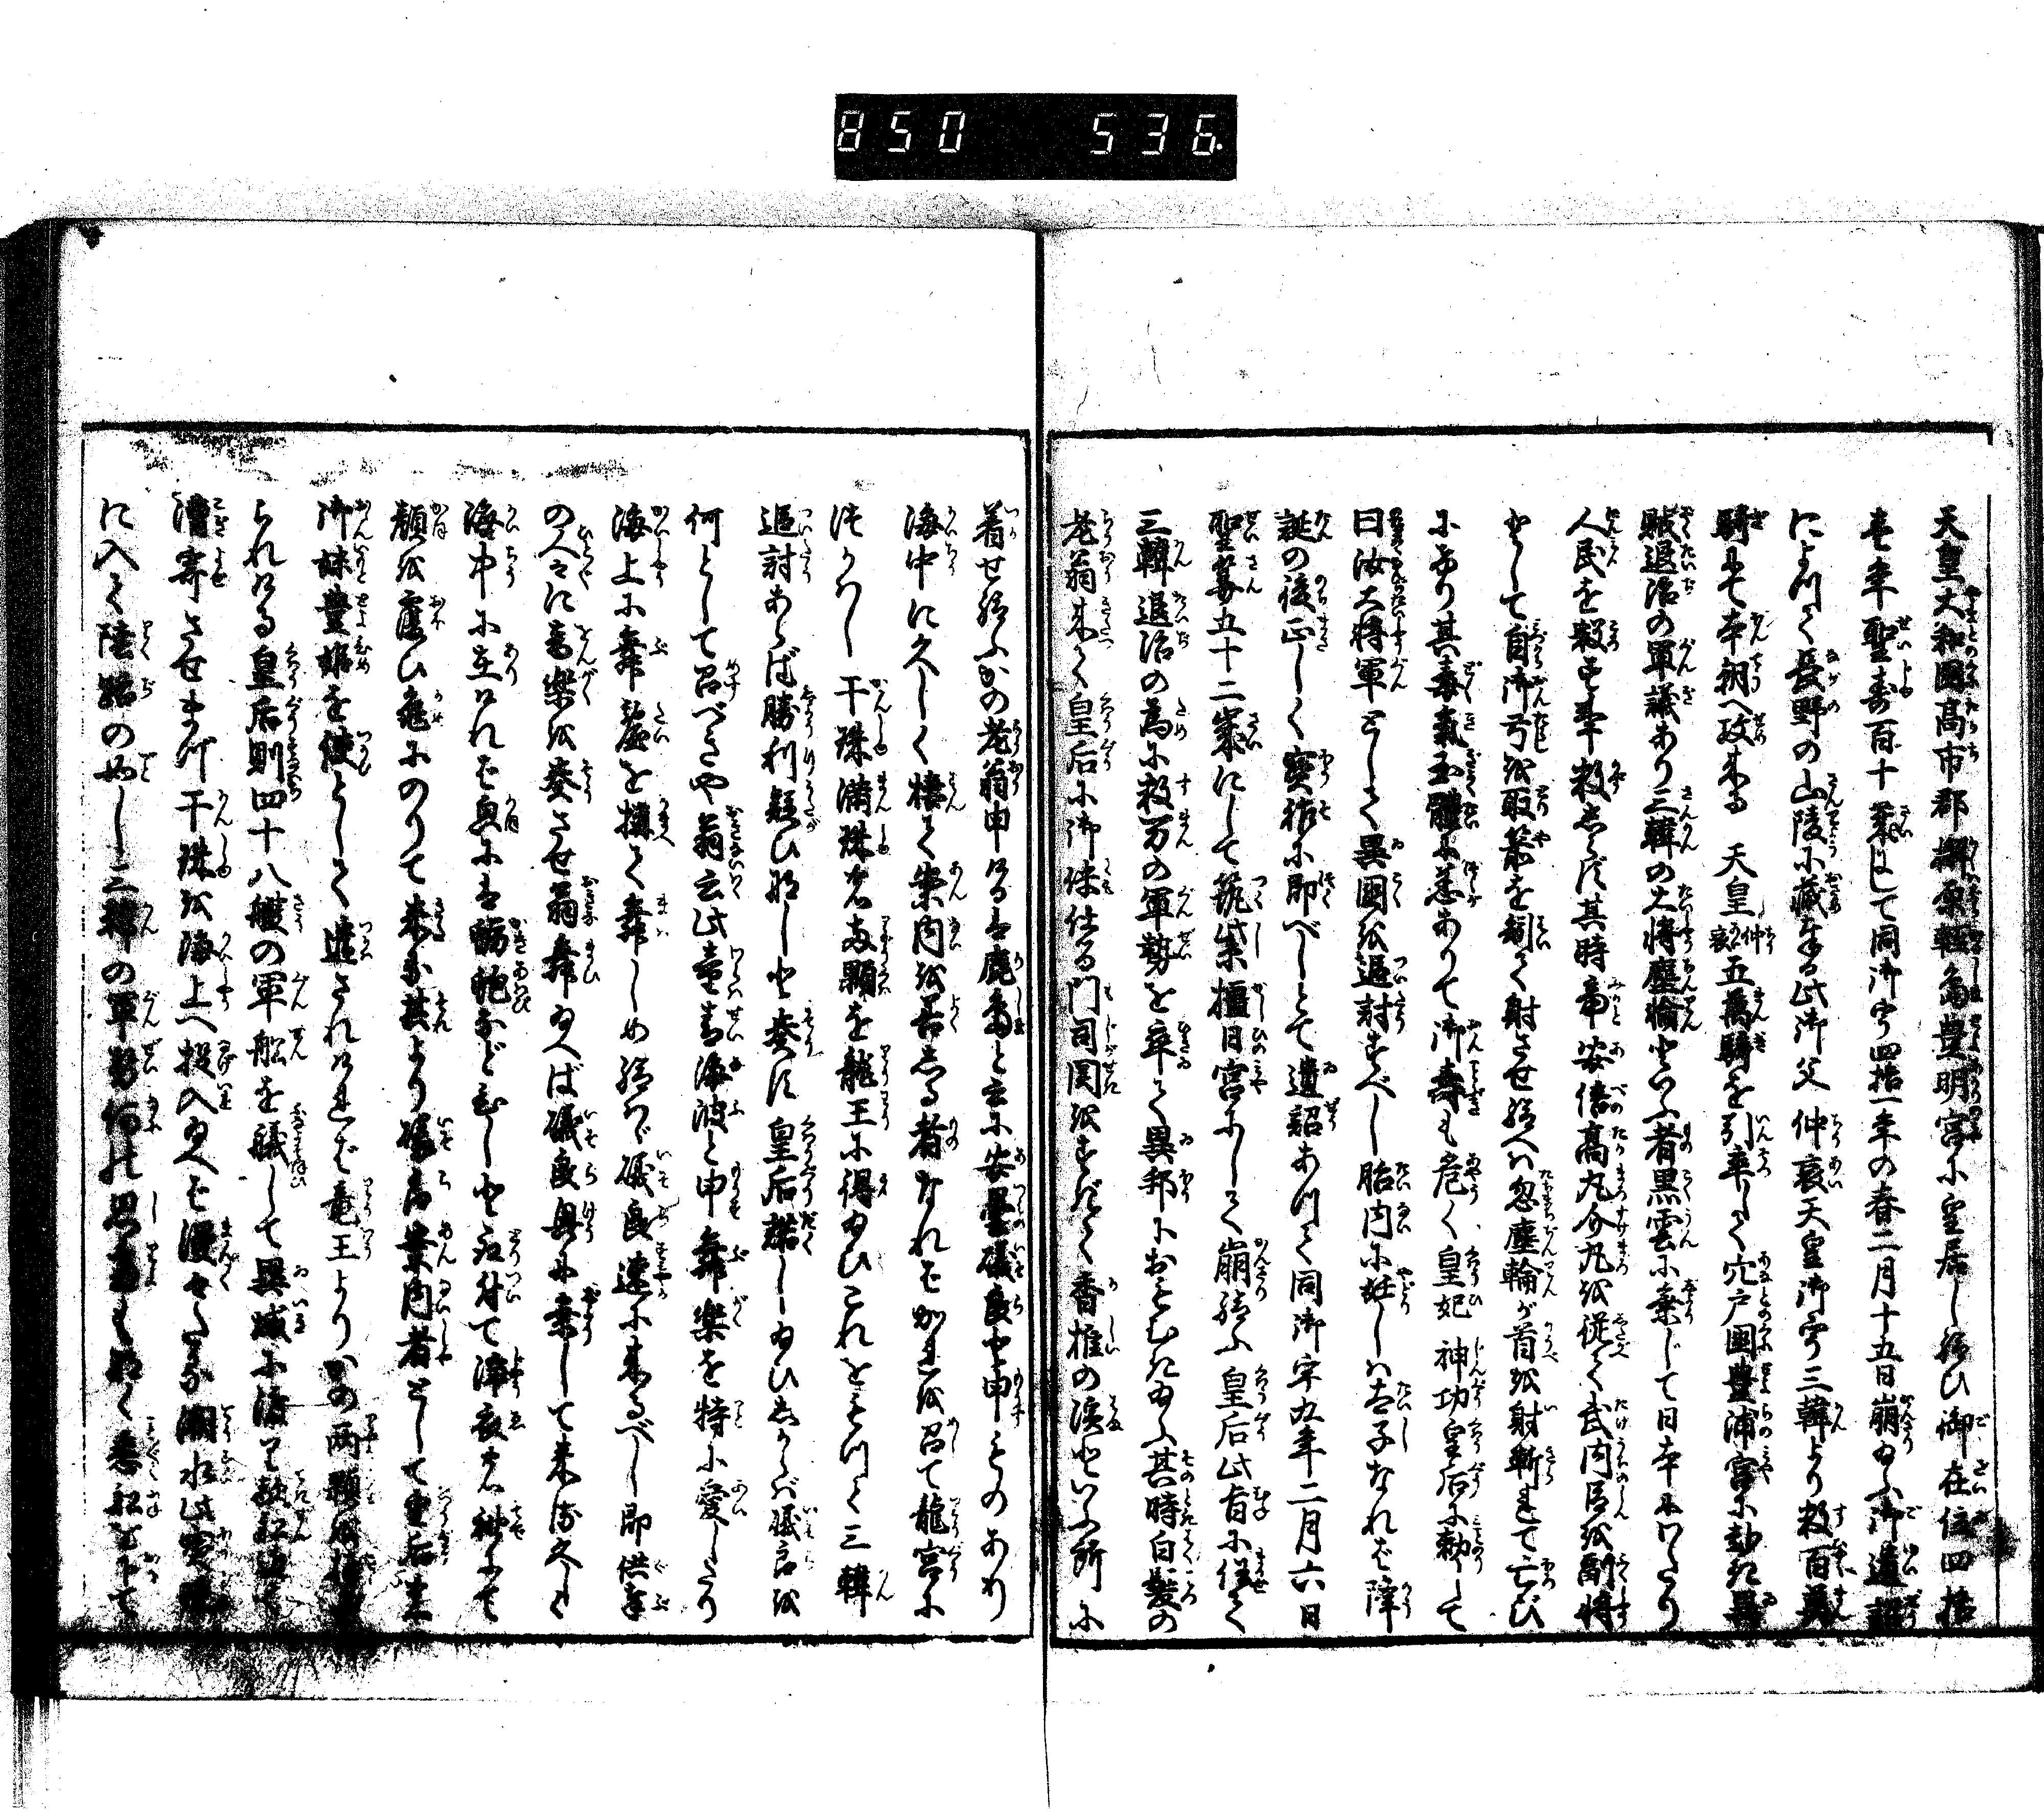 850 536
天皇大和國高市郡橿原軽島豊明宮に皇居し給ひ御在位四拾
壱年聖壽百十歳にして同御宇四拾一年の春二月十五日崩ゐふ御遺詔
によりて長野の山陵に蔵奉る此御父仲哀天皇御宇三韓より数百萬
騎にて本朝へ攻来る 天皇仲哀五萬騎を引率して穴戸国豊浦宮に
賊退治の軍議あり三韓の大将塵輪といふ者黒雲に乗じて日本にわたり
人民を殺す事数しらず其時帝安倍高丸介丸を従へ武内臣を副将
として自御弓を取箭を矧て射させ給へハ忽塵輪が首を射斬れて亡び
にけり其毒氣玉體に恙ありて御壽も危く皇妃 神功皇后に勅して
曰汝大将軍として異國を追討すべし胎内に妊しハ太子なれば降
誕の後正しく寳祚に即べしとて遺詔あつて同御宇九年二月六日
聖算五十二歳にして筑紫橿日宮にして崩給ふ皇后此旨に任て
三韓退治の為に数万の軍勢を率て異邦におもむきゐふ其時白髪の
老翁来て皇后に御供仕る門司関をすぎて香椎の濱といふ所に
着せ給ふかの老翁申けるは鹿島と云に安曇磯良と申ものあり
海中に久しく棲て案内を若しる者なればかれを召て龍宮に
つかハし干珠満珠の両顆を龍王に得ゐひこれをもつて三韓
追討あらば勝利疑ひなしと奏す皇后諾しゐひしからバ磯良を
何として召べきや翁云此童青海波と申舞樂を特に愛したり
海上に舞臺を構て舞しめ給ハゞ磯良速に来るべし即供奉
の人々に音樂を奏させ翁舞ゐへば磯良奥に乗して来る久しく
海中に在ければ身には蛎鮑などむしと取付て浄衣の袖にて
顔を覆ひ亀にのりて来る其より磯良案内者として皇后
御妹豊姫を使として遣されければ竜王よりかの両顆を
られける皇后則四十八艘の軍船を艤して異域に渡り敵船
漕寄させまし干珠を海上へ投入ゐへば漫々たる潮水此
に入て陸路の如し三韓の軍勢何の思慮もなく悉船をすて